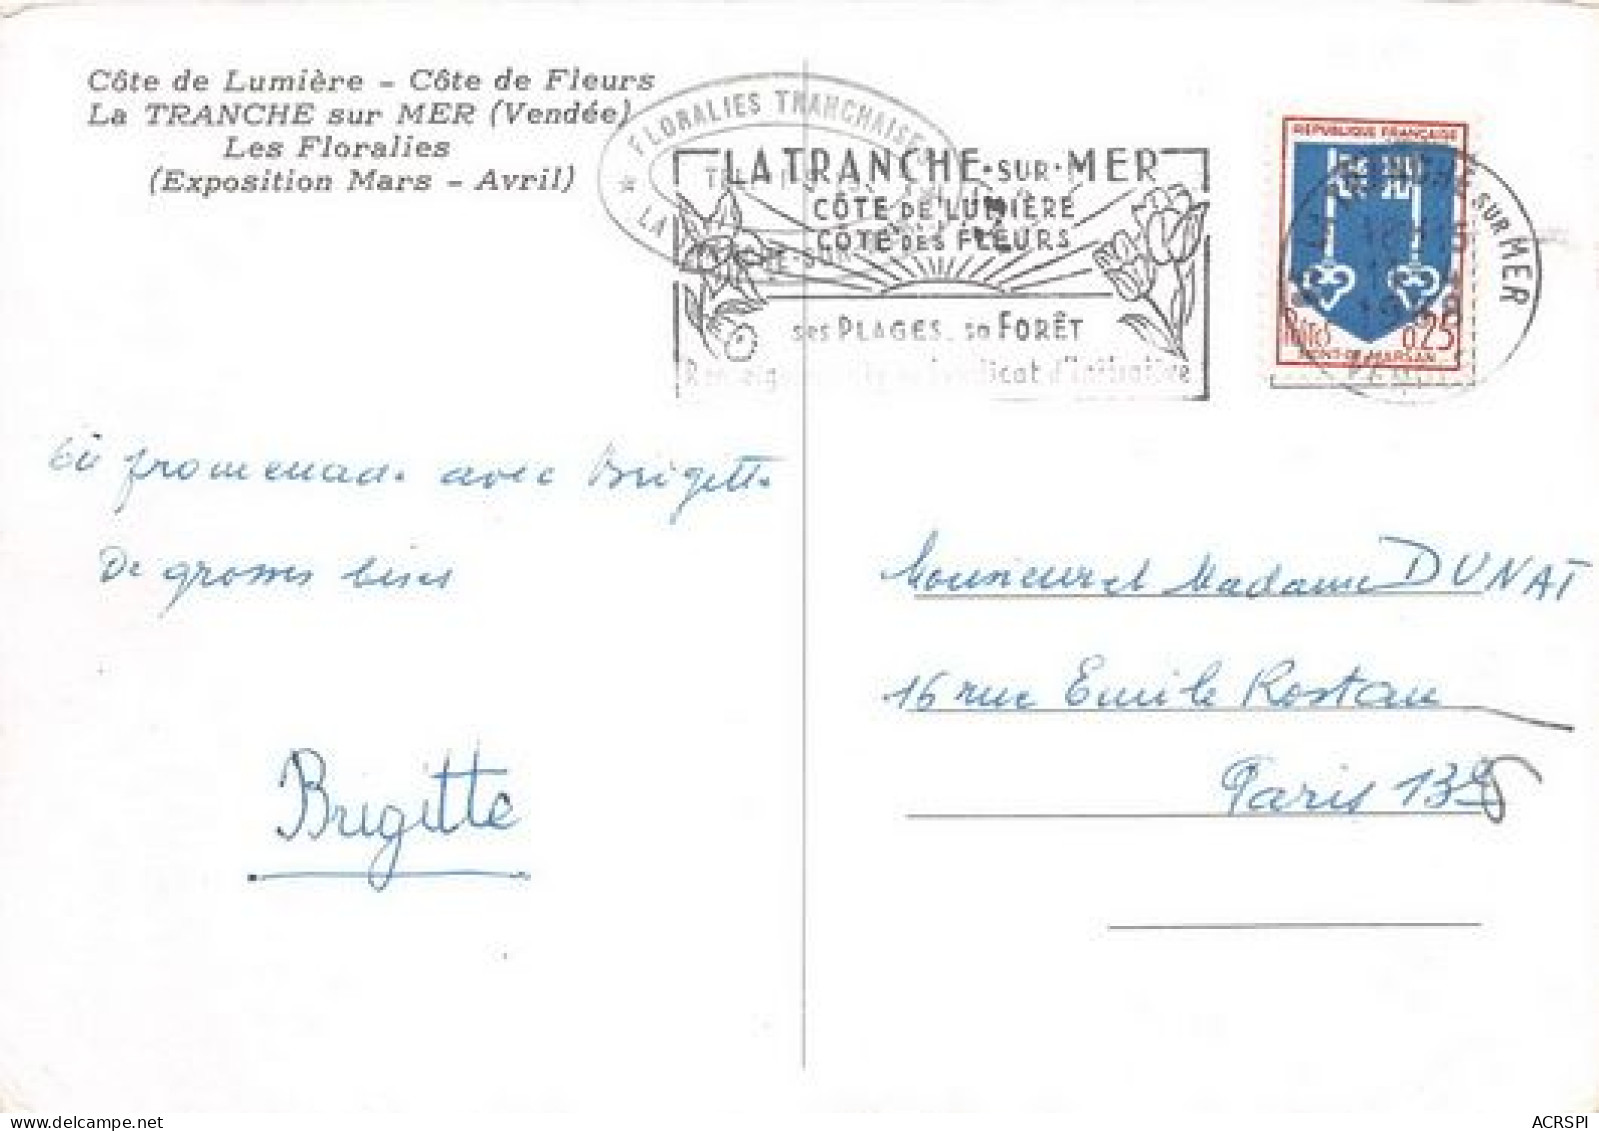 Côte de Lumière - Côte de Fleurs
La TRANCHE sur MER (Vendée)
Les Floralies
(Exposition Mars - Avril)
★ FLORALIES TRANCHAISE
LA
LA TRANCHE·SUR·MER
CÔTE DE LUMIÈRE
CÔTE DES FLEURS
ses PLAGES, sa FORÊT
Syndicat d'initiative
REPUBLIQUE FRANÇAISE
Postes 0,25
MONT-DE-MARSAN
SUR MER
En promenade avec Brigitte
De grosses bises
Brigitte
Monsieur et Madame DUNAT
16 rue Emile Rostan
Paris 13e
ACRSPI